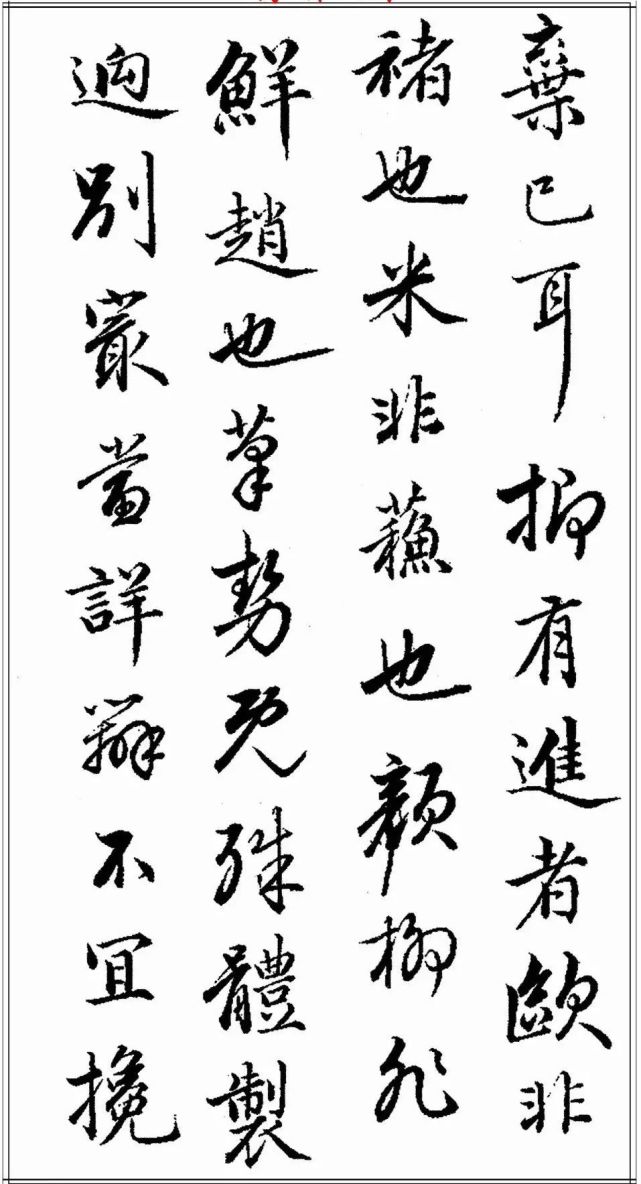 棄已耳抑有進者歐非
褚也米非蘇也顏柳非
鮮趙也筆勢既殊體製
迥別最當詳辨不宜攙